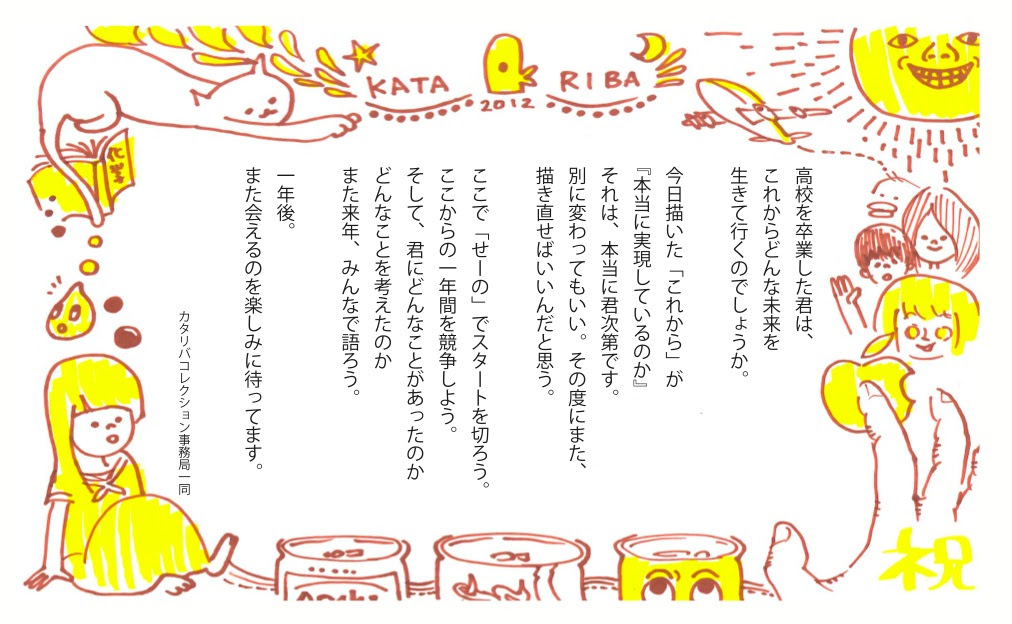 KATA RIBA
2012
高校を卒業した君は、
これからどんな未来を
生きて行くのでしょうか。
今日描いた「これから」が
『本当に実現しているのか』
それは、本当に君次第です。
別に変わってもいい。その度にまた、
描き直せばいいんだと思う。
ここで「せーの」でスタートを切ろう。
ここからの一年間を競争しよう。
そして、君にどんなことがあったのか
どんなことを考えたのか
また来年、みんなで語ろう。
一年後。
また会えるのを楽しみに待ってます。
カタリバコレクション事務局一同
化学
祝